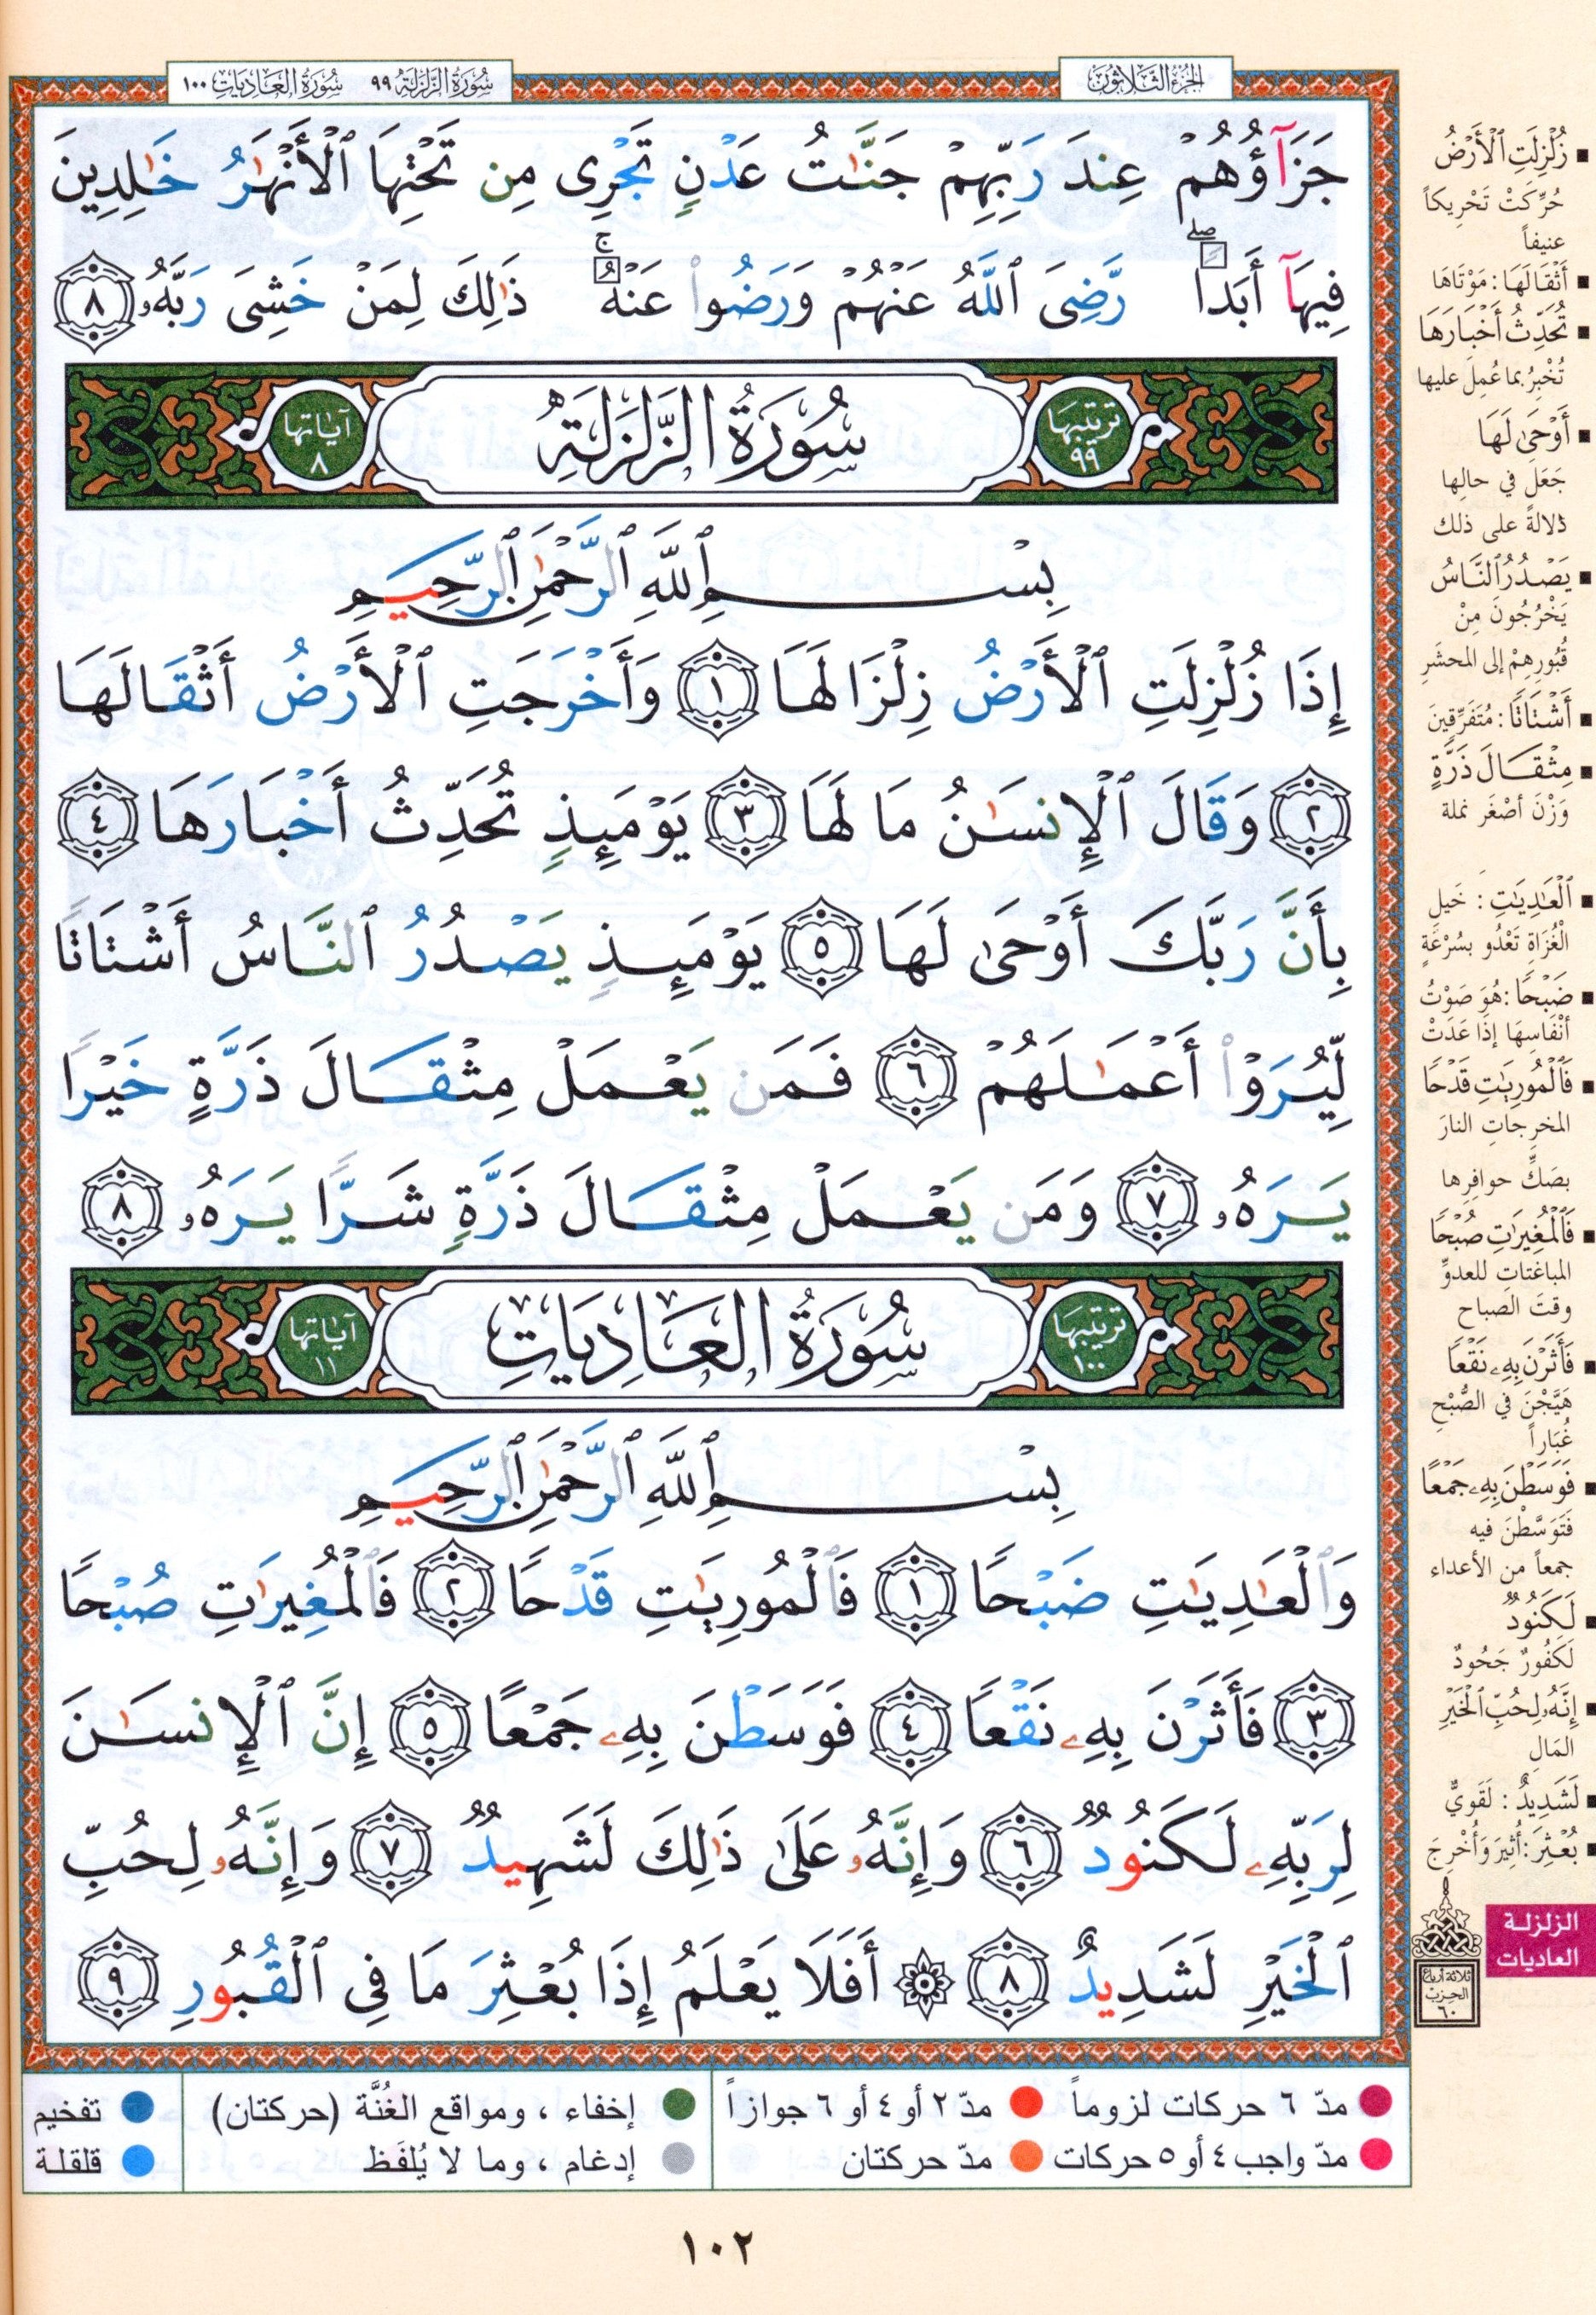 الجزء الثلاثون
سورة الزلزلة ٩٩ سورة العاديات ١٠٠
جَزَآؤُهُمْ عِندَ رَبِّهِمْ جَنَّٰتُ عَدْنٍ تَجْرِى مِن تَحْتِهَا ٱلْأَنْهَٰرُ خَٰلِدِينَ
فِيهَآ أَبَدًا ۖ رَّضِىَ ٱللَّهُ عَنْهُمْ وَرَضُوا۟ عَنْهُ ۚ ذَٰلِكَ لِمَنْ خَشِىَ رَبَّهُۥ ٨
ترتيبها ٩٩ سُورَةُ الزَّلْزَلَةِ آياتها ٨
بِسْمِ ٱللَّهِ ٱلرَّحْمَٰنِ ٱلرَّحِيمِ
إِذَا زُلْزِلَتِ ٱلْأَرْضُ زِلْزَالَهَا ١ وَأَخْرَجَتِ ٱلْأَرْضُ أَثْقَالَهَا
٢ وَقَالَ ٱلْإِنسَٰنُ مَا لَهَا ٣ يَوْمَئِذٍ تُحَدِّثُ أَخْبَارَهَا ٤
بِأَنَّ رَبَّكَ أَوْحَىٰ لَهَا ٥ يَوْمَئِذٍ يَصْدُرُ ٱلنَّاسُ أَشْتَاتًا
لِّيُرَوْا۟ أَعْمَٰلَهُمْ ٦ فَمَن يَعْمَلْ مِثْقَالَ ذَرَّةٍ خَيْرًا
يَرَهُۥ ٧ وَمَن يَعْمَلْ مِثْقَالَ ذَرَّةٍ شَرًّا يَرَهُۥ ٨
ترتيبها ١٠٠ سُورَةُ العَادِيَاتِ آياتها ١١
بِسْمِ ٱللَّهِ ٱلرَّحْمَٰنِ ٱلرَّحِيمِ
وَٱلْعَٰدِيَٰتِ ضَبْحًا ١ فَٱلْمُورِيَٰتِ قَدْحًا ٢ فَٱلْمُغِيرَٰتِ صُبْحًا
٣ فَأَثَرْنَ بِهِۦ نَقْعًا ٤ فَوَسَطْنَ بِهِۦ جَمْعًا ٥ إِنَّ ٱلْإِنسَٰنَ
لِرَبِّهِۦ لَكَنُودٌ ٦ وَإِنَّهُۥ عَلَىٰ ذَٰلِكَ لَشَهِيدٌ ٧ وَإِنَّهُۥ لِحُبِّ
ٱلْخَيْرِ لَشَدِيدٌ ٨ ۞ أَفَلَا يَعْلَمُ إِذَا بُعْثِرَ مَا فِى ٱلْقُبُورِ ٩
زُلْزِلَتِ ٱلْأَرْضُ
حُرِّكَتْ تَحْرِيكاً
عنيفاً
أَثْقَالَهَا : مَوْتَاهَا
تُحَدِّثُ أَخْبَارَهَا
تُخْبِرُ بما عُمِلَ عليها
أَوْحَىٰ لَهَا
جَعَلَ في حالِها
دلالةً على ذلك
يَصْدُرُ ٱلنَّاسُ
يَخْرُجُونَ مِنْ
قُبُورِهِمْ إلى المحشَرِ
أَشْتَاتًا : مُتَفَرِّقِينَ
مِثْقَالَ ذَرَّةٍ
وَزْنَ أصْغَرِ نملة
ٱلْعَٰدِيَٰتِ : خَيلِ
الْغُزَاةِ تَعْدُو بسُرْعَةٍ
ضَبْحًا : هُوَ صَوْتُ
أنْفَاسِهَا إذا عَدَتْ
فَٱلْمُورِيَٰتِ قَدْحًا
المخرِجاتِ النارَ
بصَكِّ حوافِرِها
فَٱلْمُغِيرَٰتِ صُبْحًا
المباغتاتِ للعدوِّ
وقتَ الصباح
فَأَثَرْنَ بِهِۦ نَقْعًا
هَيَّجْنَ في الصُّبْحِ
غُبَاراً
فَوَسَطْنَ بِهِۦ جَمْعًا
فَتَوَسَّطْنَ فيه
جمعاً من الأعداء
لَكَنُودٌ
لَكَفُورٌ جَحُودٌ
إِنَّهُۥ لِحُبِّ ٱلْخَيْرِ
المَالِ
لَشَدِيدٌ : لَقَوِيٌّ
بُعْثِرَ : أُثِيرَ وَأُخْرِجَ
الزلزلة
العاديات
ثلاثة أرباع
الحزب
٦٠
مدّ ٦ حركات لزوماً مدّ ٢ أو ٤ أو ٦ جوازاً إخفاء ، ومواقع الغُنَّة (حركتان) تفخيم
مدّ واجب ٤ أو ٥ حركات مدّ حركتان إدغام ، وما لا يُلفَظ قلقلة
١٠٢